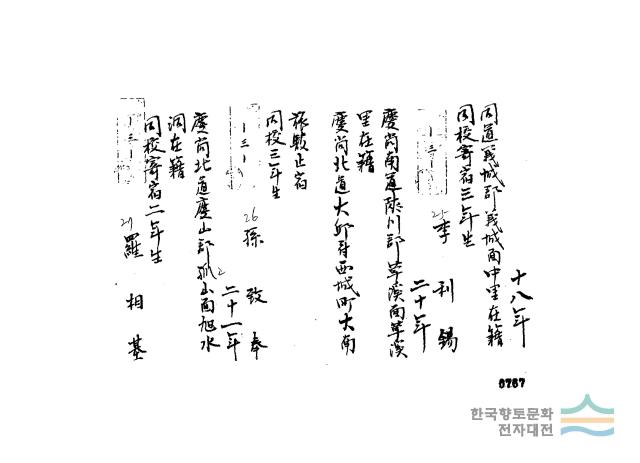 十八年
同道義城郡義城面中里在籍
同校寄宿三年生
一三一
25 李利錫
二十年
慶尚南道陜川郡草溪面草溪
里在籍
慶尚北道大邱府西城町大南
旅館止宿
同校三年生
一三一
26 孫致奉
二十一年
慶尚北道慶山郡孤山面旭水
洞在籍
同校寄宿二年生
一三一
27 羅相基
0767
한국향토문화
전자대전